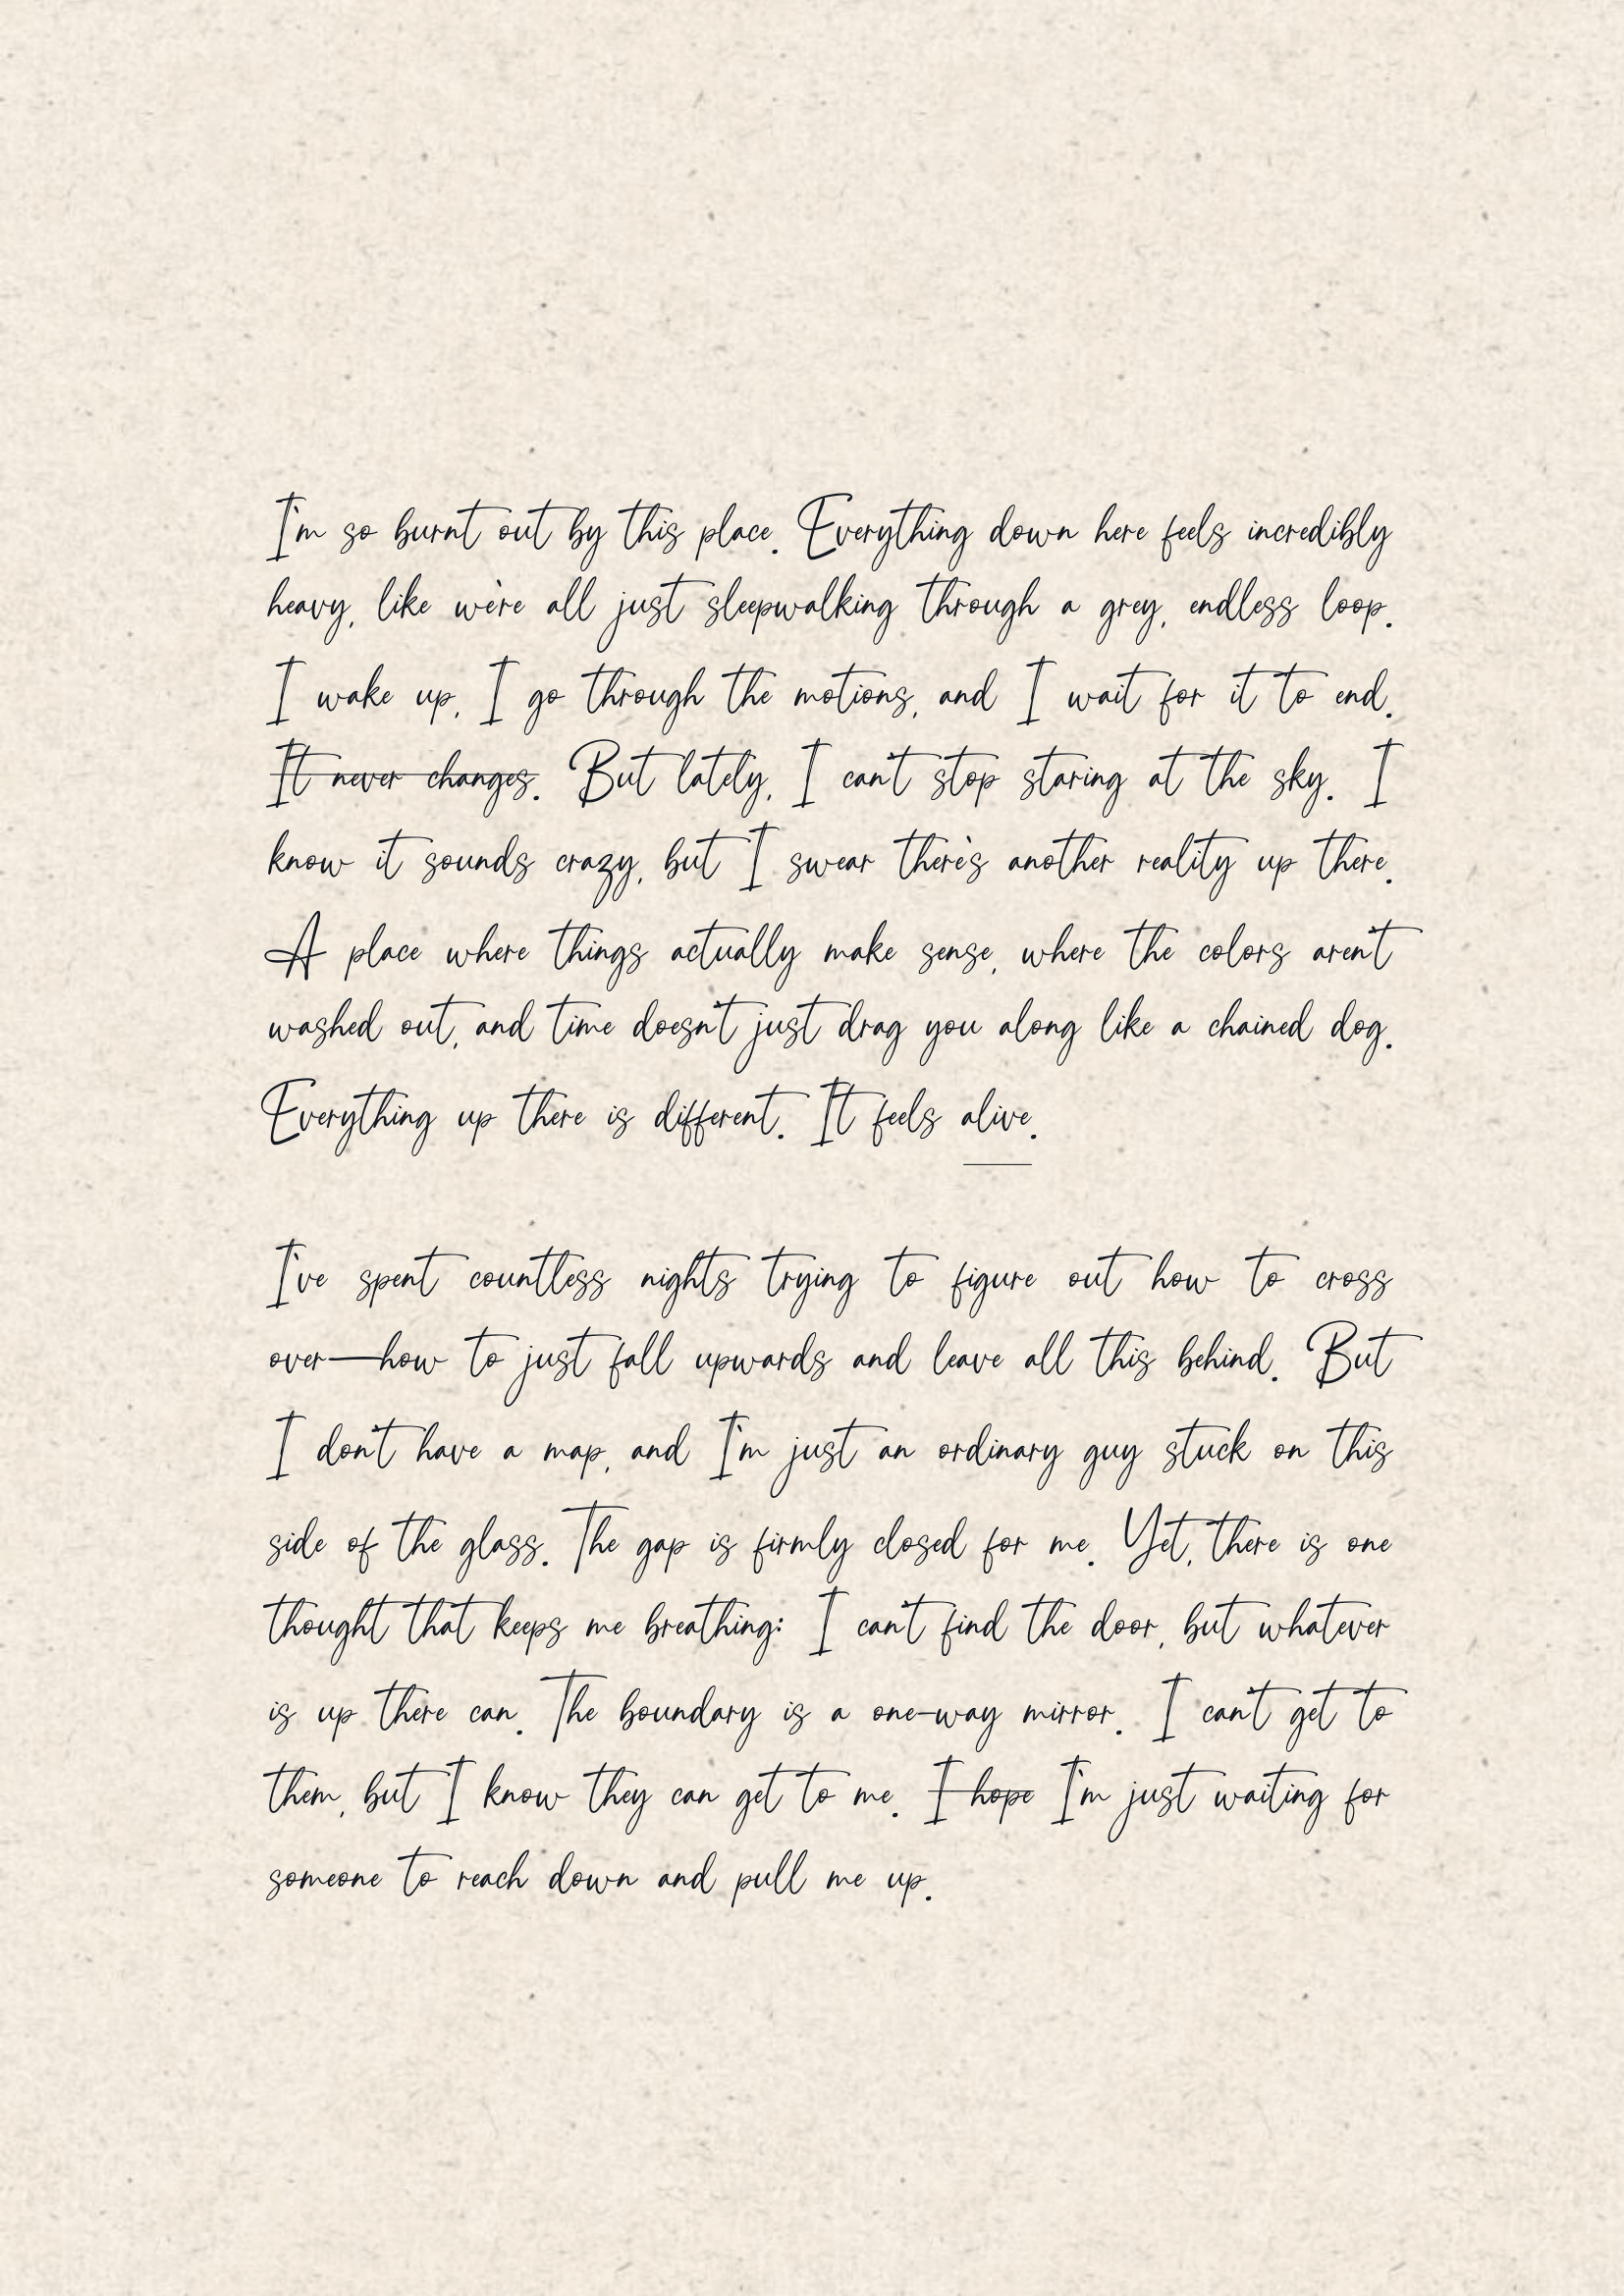 I'm so burnt out by this place. Everything down here feels incredibly
heavy, like we're all just sleepwalking through a grey, endless loop.
I wake up, I go through the motions, and I wait for it to end.
It never changes. But lately, I can't stop staring at the sky. I
know it sounds crazy, but I swear there's another reality up there.
A place where things actually make sense, where the colors aren't
washed out, and time doesn't just drag you along like a chained dog.
Everything up there is different. It feels alive.
I've spent countless nights trying to figure out how to cross
over—how to just fall upwards and leave all this behind. But
I don't have a map, and I'm just an ordinary guy stuck on this
side of the glass. The gap is firmly closed for me. Yet, there is one
thought that keeps me breathing: I can't find the door, but whatever
is up there can. The boundary is a one-way mirror. I can't get to
them, but I know they can get to me. I hope I'm just waiting for
someone to reach down and pull me up.